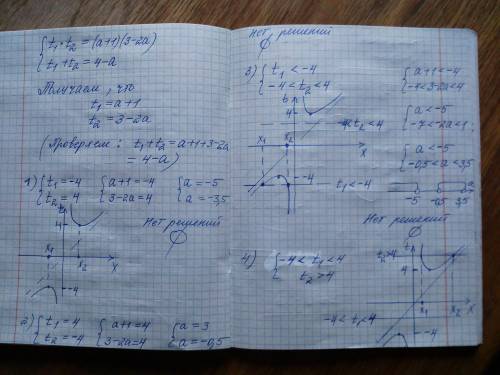 { t₁·t₂ = (a+1)(3-2a)
{ t₁+t₂ = 4-a
Получаем, что
t₁ = a+1
t₂ = 3-2a
(Проверяем: t₁+t₂ = a+1+3-2a
= 4-a)
1) { t₁ = -4 { a+1 = -4 { a = -5
{ t₂ = 4 { 3-2a = 4 { a = -3,5
Нет решений
∅
t
4
x₁ x₂ x
-4
2) { t₁ = 4 { a+1 = 4 { a = 3
{ t₂ = -4 { 3-2a = 4 { a = -0,5
Нет решений
∅
3) { t₁ < -4 { a+1 < -4
{ -4 < t₂ < 4 { -4 < 3-2a < 4
{ a < -5
{ -7 < -2a < 1
{ a < -5
{ -0,5 < a < 3,5
t
4
-4 < t₂ < 4
x₁ x₂ x
-4
t₁ < -4
-5 -0,5 3,5
Нет решений
∅
4) { -4 < t₁ < 4
{ t₂ > 4
t
t₂ > 4
4
x₁ x₂ x
-4 < t₁ < 4
-4